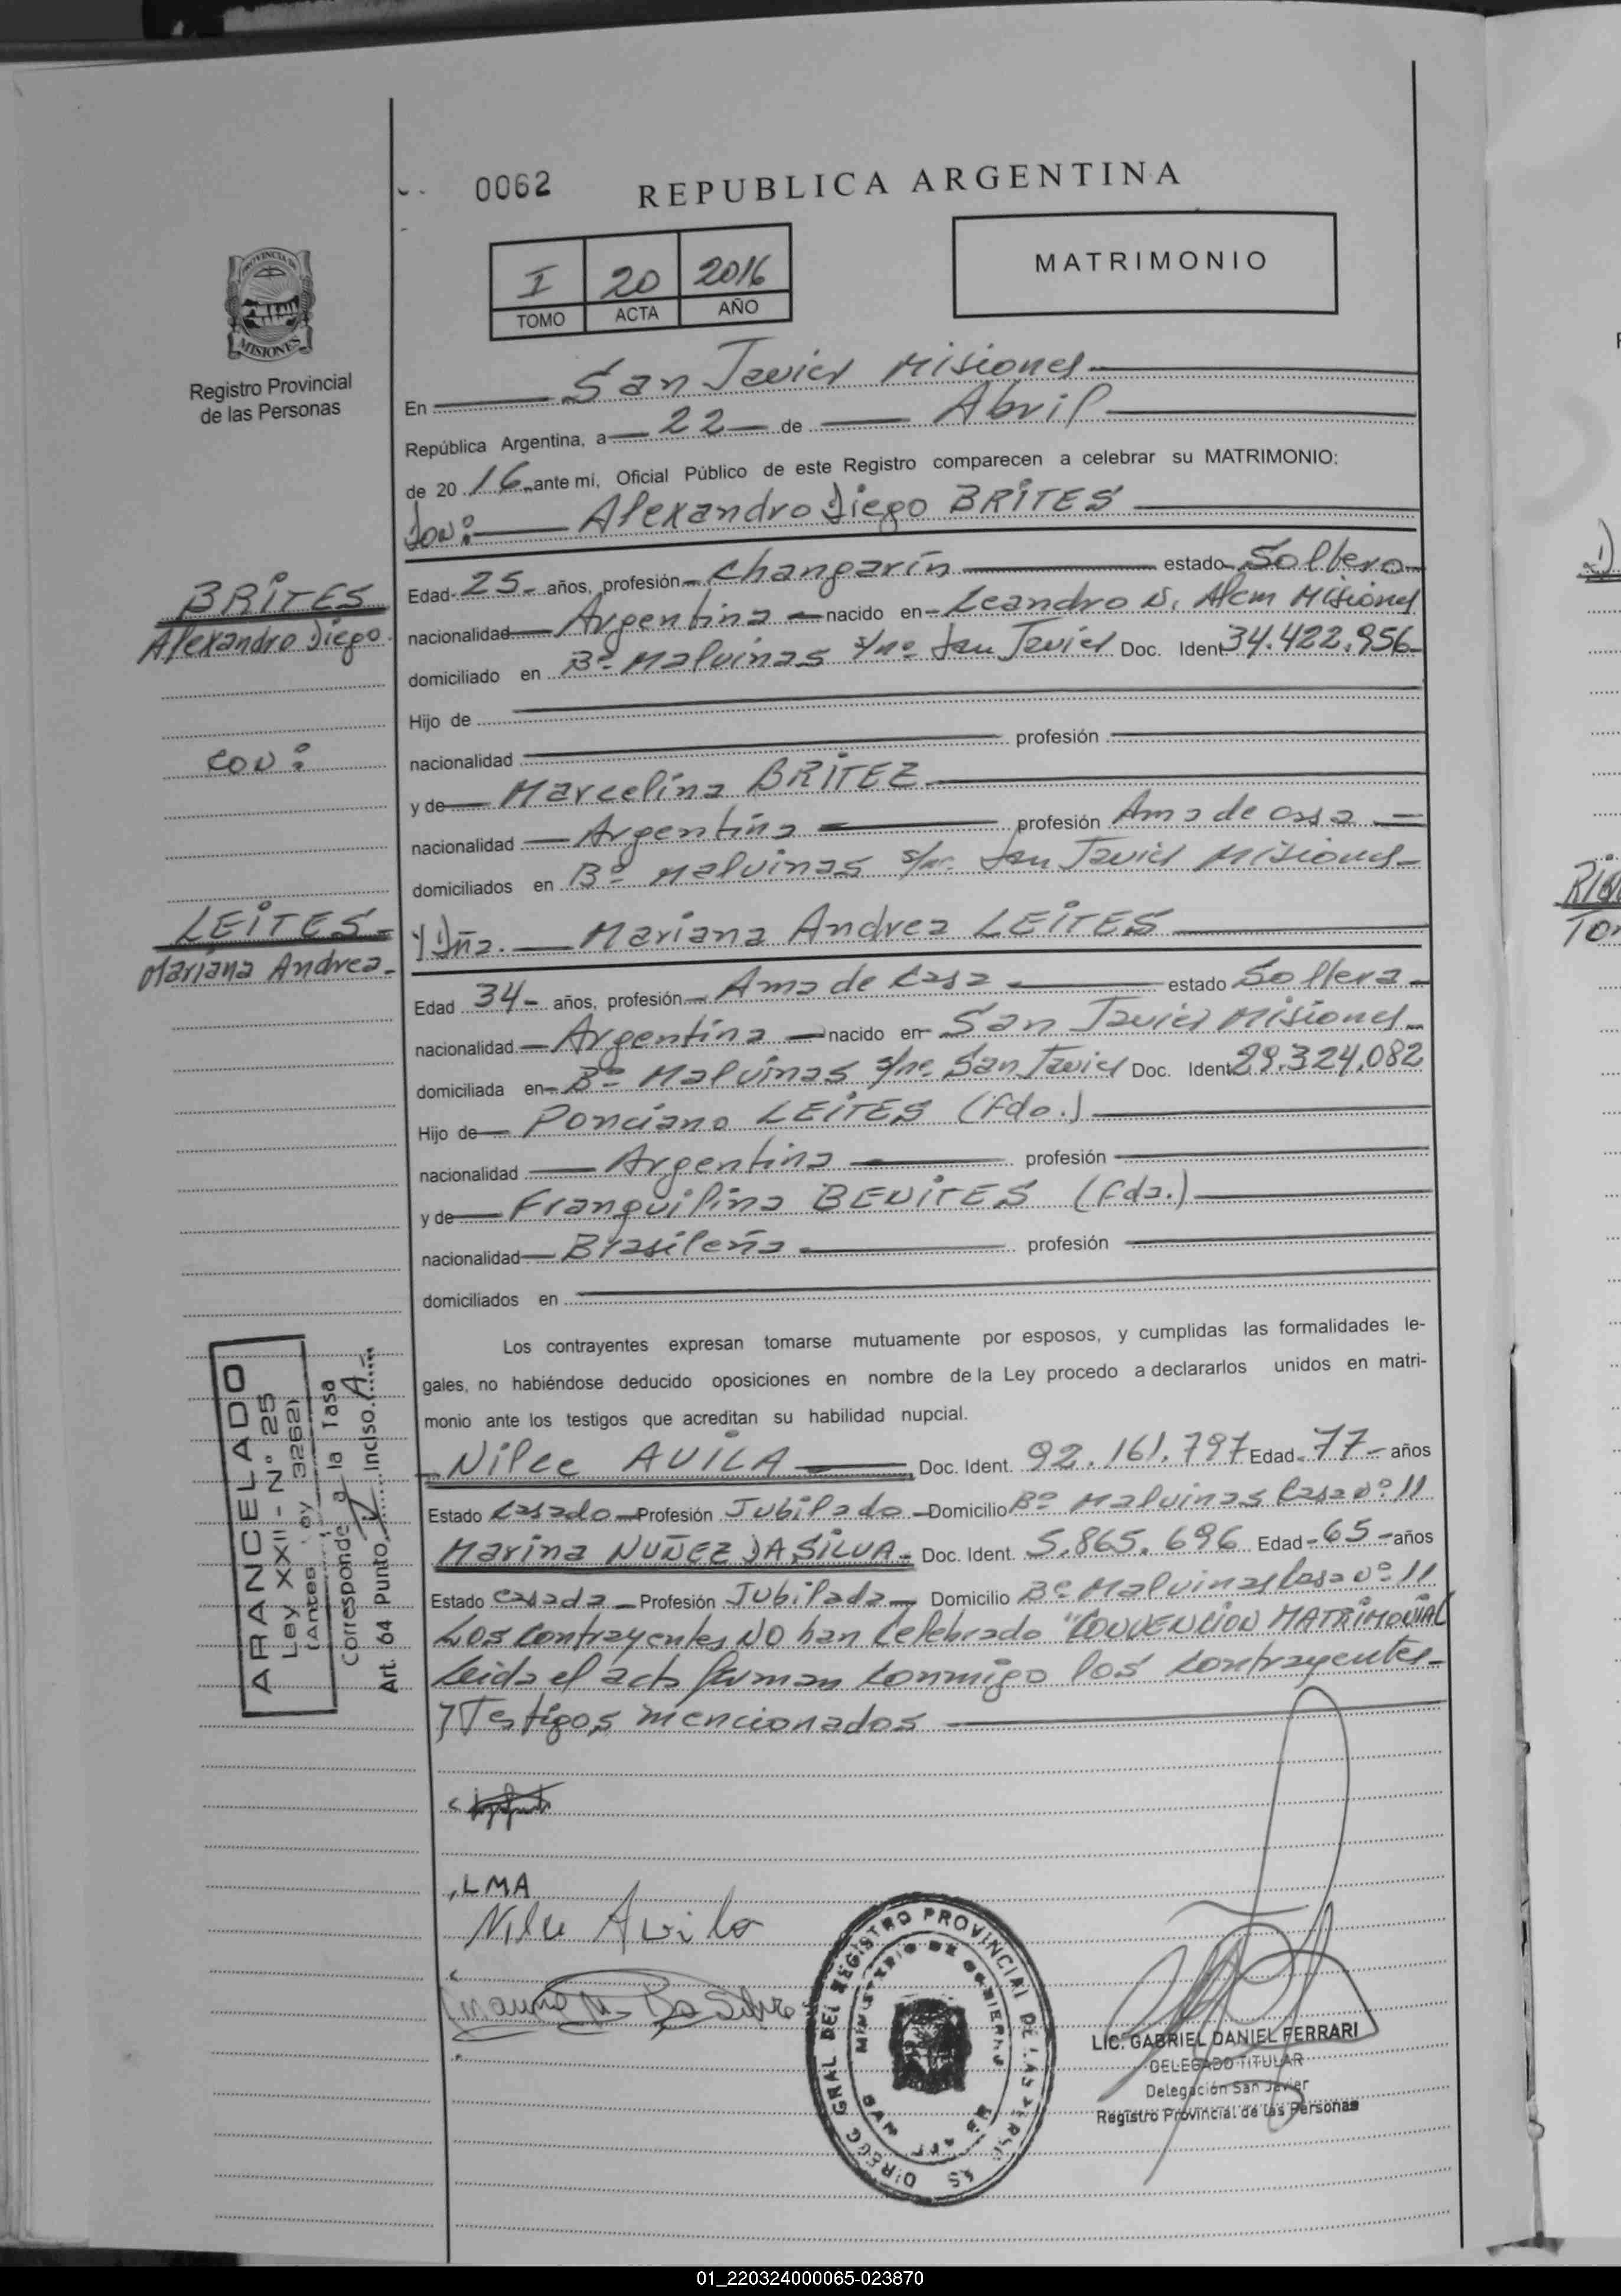 0062
REPUBLICA ARGENTINA
I 20 2016
TOMO ACTA AÑO
MATRIMONIO
PROVINCIA DE
MISIONES
Registro Provincial
de las Personas
En San Javier Misiones
República Argentina, a 22 de Abril
de 20 16 ante mí, Oficial Público de este Registro comparecen a celebrar su MATRIMONIO:
Don: Alexandro Diego BRITES
BRITES
Alexandro Diego
con:
LEITES
Mariana Andrea
Edad 25 años, profesión changarín estado Soltero
nacionalidad Argentina nacido en Leandro N. Alem Misiones
domiciliado en Bº Malvinas s/nº San Javier Doc. Ident 34.422.956
Hijo de
nacionalidad profesión
y de Marcelina BRITEZ
nacionalidad Argentina profesión Ama de casa
domiciliados en Bº Malvinas s/nº San Javier Misiones
Y Dña. Mariana Andrea LEITES
Edad 34 años, profesión Ama de casa estado Soltera
nacionalidad Argentina nacido en San Javier Misiones
domiciliada en Bº Malvinas s/nº San Javier Doc. Ident 29.324.082
Hijo de Ponciano LEITES (fdo.)
nacionalidad Argentina profesión
y de Franquilina BENITES (fda.)
nacionalidad Brasileña profesión
domiciliados en
Los contrayentes expresan tomarse mutuamente por esposos, y cumplidas las formalidades le-
gales, no habiéndose deducido oposiciones en nombre de la Ley procedo a declararlos unidos en matri-
monio ante los testigos que acreditan su habilidad nupcial.
Nilce AVILA Doc. Ident. 92.161.797 Edad 77 años
Estado casado Profesión Jubilado Domicilio Bº Malvinas Casa nº 11
Marina NUÑEZ DA SILVA Doc. Ident. 5.865.696 Edad 65 años
Estado casada Profesión Jubilada Domicilio Bº Malvinas Casa nº 11
Los contrayentes NO han celebrado "CONVENCION MATRIMONIAL
Leida el acta firman conmigo los contrayentes
y Testigos mencionados
ARANCELADO
Ley XXII - Nº 25
(Antes Ley 3262)
Corresponde a la Tasa
Art. 64 Punto Inciso A
LMA
Nilce Avila
DIRECC GRAL DEL REGISTRO PROVINCIAL DE LAS PERS
MINISTERIO DE GOBIERNO
LIC. GABRIEL DANIEL FERRARI
DELEGADO TITULAR
Delegación San Javier
Registro Provincial de las Personas
01_220324000065-023870